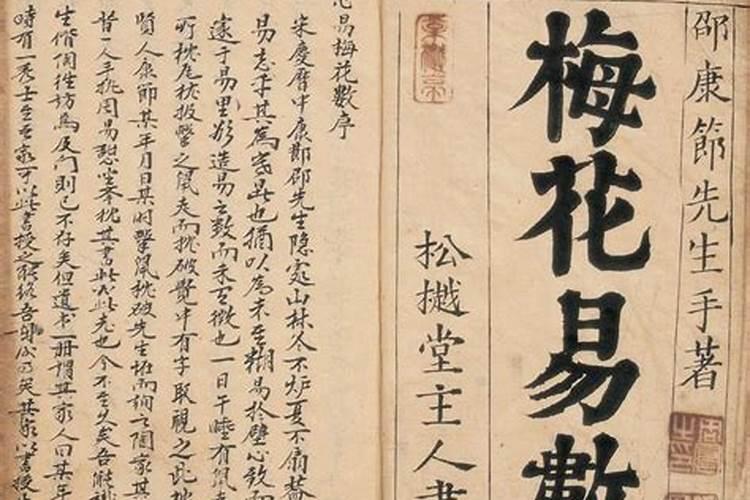 邵康節先生手著
梅花易數
松樾堂主人書
心易梅花數序
宋慶曆中康節邵先生隱處山林冬不炉夏不扇蓋
易忘乎其為寒暑也猶以為未至糊易於壁心致而
遂于易里欲造易之數而未有徵也一日午睡有鼠走
所枕瓦枕投擊之鼠走而枕破覺中有字取視之此枕
賢人康節某年月日某时擊鼠枕破先生怪而詢之陶家其
昔一人手执周易憩坐举枕其書必此老也今不至久矣吾能識
生偕陶往坊為及門則已不存矣但遺书一册謂其家人曰某年
時有一秀士至吾家可以此書授之能終吾身矣其家以書授先